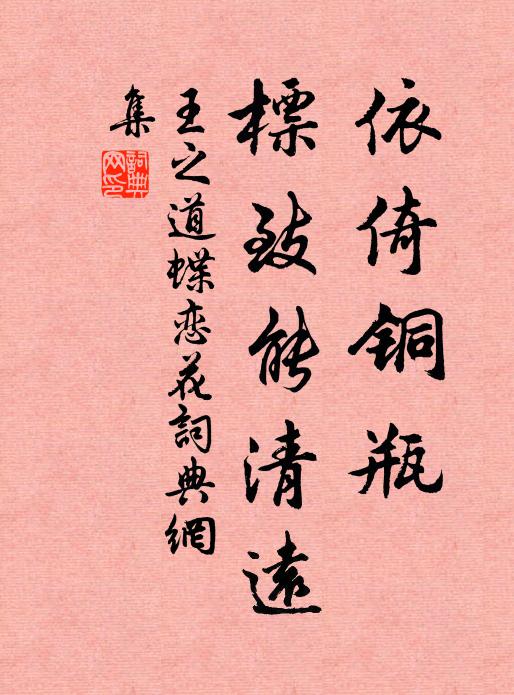 依倚銅瓶
標致能清遠
王之道蝶恋花詞典網
集
詞典網印